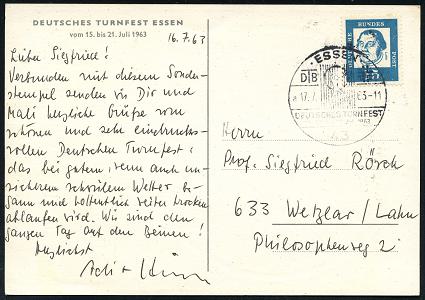 DEUTSCHES TURNFEST ESSEN
vom 15. bis 21. Juli 1963
16.7.63
Lieber Siegfried!
Verbunden mit diesem Sonder-
stempel senden wir Dir und
Mali herzliche Grüße vom
schönen und sehr eindrucks-
vollen Deutschen Turnfest,
das bei gutem, wenn auch un-
sicherem schwülem Wetter be-
gann und hoffentlich weiter trocken
ablaufen wird. Wir sind den
ganzen Tag auf den Beinen!
Herzlichst
DEUTSCHE BUNDES POST
15
ESSEN
DTB
17.7. 63-11
DEUTSCHES TURNFEST
Herrn
Prof. Siegfried Rösch
633 Wetzlar / Lahn
Philosophenweg 2